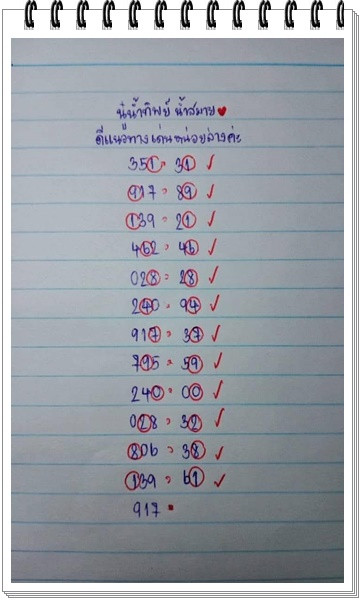 นู๋น้ำทิพย์ น้ำสบาย
ดีแนวทางเด่นหน่อยล่างค่ะ
351 = 31 ✓
917 = 89 ✓
139 = 21 ✓
462 = 46 ✓
028 = 28 ✓
240 = 94 ✓
917 = 37 ✓
795 = 59 ✓
240 = 00 ✓
028 = 32 ✓
806 = 38 ✓
139 = 61 ✓
917 =